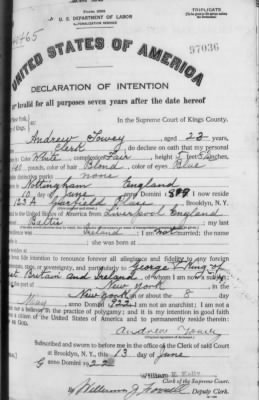 TRIPLICATE
U. S. DEPARTMENT OF LABOR
NATURALIZATION SERVICE
97036
UNITED STATES OF AMERICA
DECLARATION OF INTENTION
Invalid for all purposes seven years after the date hereof
In the Supreme Court of Kings County.
Andrew Towey, aged 23 years,
Clerk do declare on oath that my personal
Color White, complexion Fair, height 5 feet
140 pounds, color of hair Blond, color of eyes Blue
distinctive marks none
Nottingham England
10 day of June, anno Domini 1899; I now reside
123 A Garfield Place, Brooklyn, N.Y.
the United States of America from Liverpool England
Baltic; my last
Ireland; I am not married; the name
; she was born at
intention to renounce forever all allegiance and fidelity to any foreign
state, or sovereignty, and particularly to George V King of
Great Britain and Ireland, of whom I am now a subject;
New York, in the
New York on or about the 8 day
May, anno Domini 1922; I am not an anarchist; I am not a
nor a believer in the practice of polygamy; and it is my intention in good faith
a citizen of the United States of America and to permanently reside therein:
Andrew Towey
(Original signature of declarant.)
Subscribed and sworn to before me in the office of the Clerk of said Court
at Brooklyn, N.Y., this 13 day of June
anno Domini 1922
William E. Kelly
Clerk of the Supreme Court.
By William J.
Clerk.